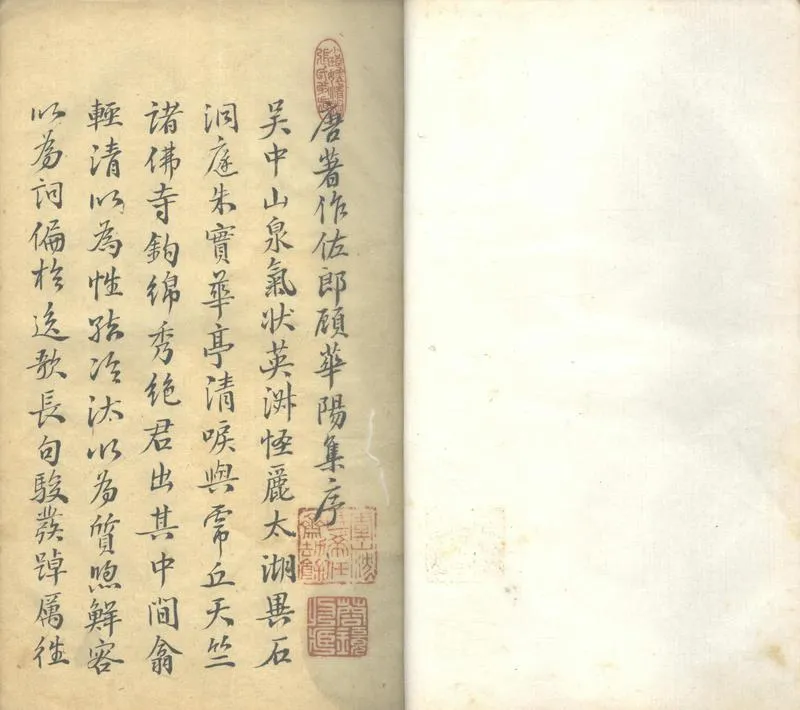 唐著作佐郎頋華陽集序
吳中山泉氣狀英淑怪麗太湖異石
洞庭朱實華亭清唳與虎丘天竺
諸佛寺鈎綿秀絕君出其中間翕
輕清以為性結冷汰以為質煦鮮容
以為詞偏於逸歌長句駿發踔厲往